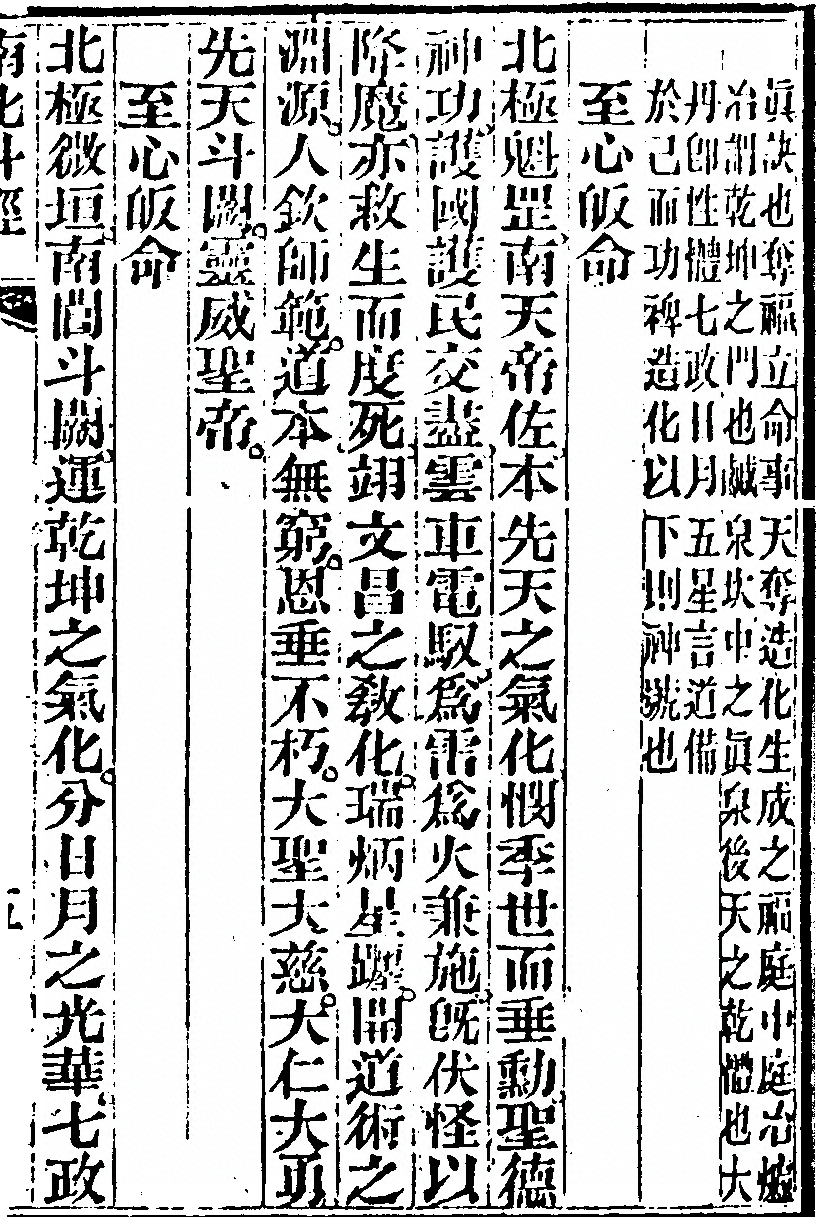 眞訣也奪福立命事天奪造化生成之福庭中庭冶爐
冶謂乾坤之門也鹹泉坎中之眞泉後天之乾體也大
丹卽性體七政日月五星言道備
於己而功裨造化以下則神號也
至心皈命
北極魁罡南天帝佐本先天之氣化憫季世而垂勳聖德
神功護國護民交盡雲車電馭爲雷爲火兼施旣伏怪以
降魔亦救生而度死翊文昌之敎化。瑞炳星躔。開道術之
淵源。人欽師範。道本無窮。恩垂不朽。大聖大慈。大仁大勇
先天斗闗。靈威聖帝。
至心皈命
北極微垣南閶斗闗運乾坤之氣化。分日月之光華七政
南北斗經
五